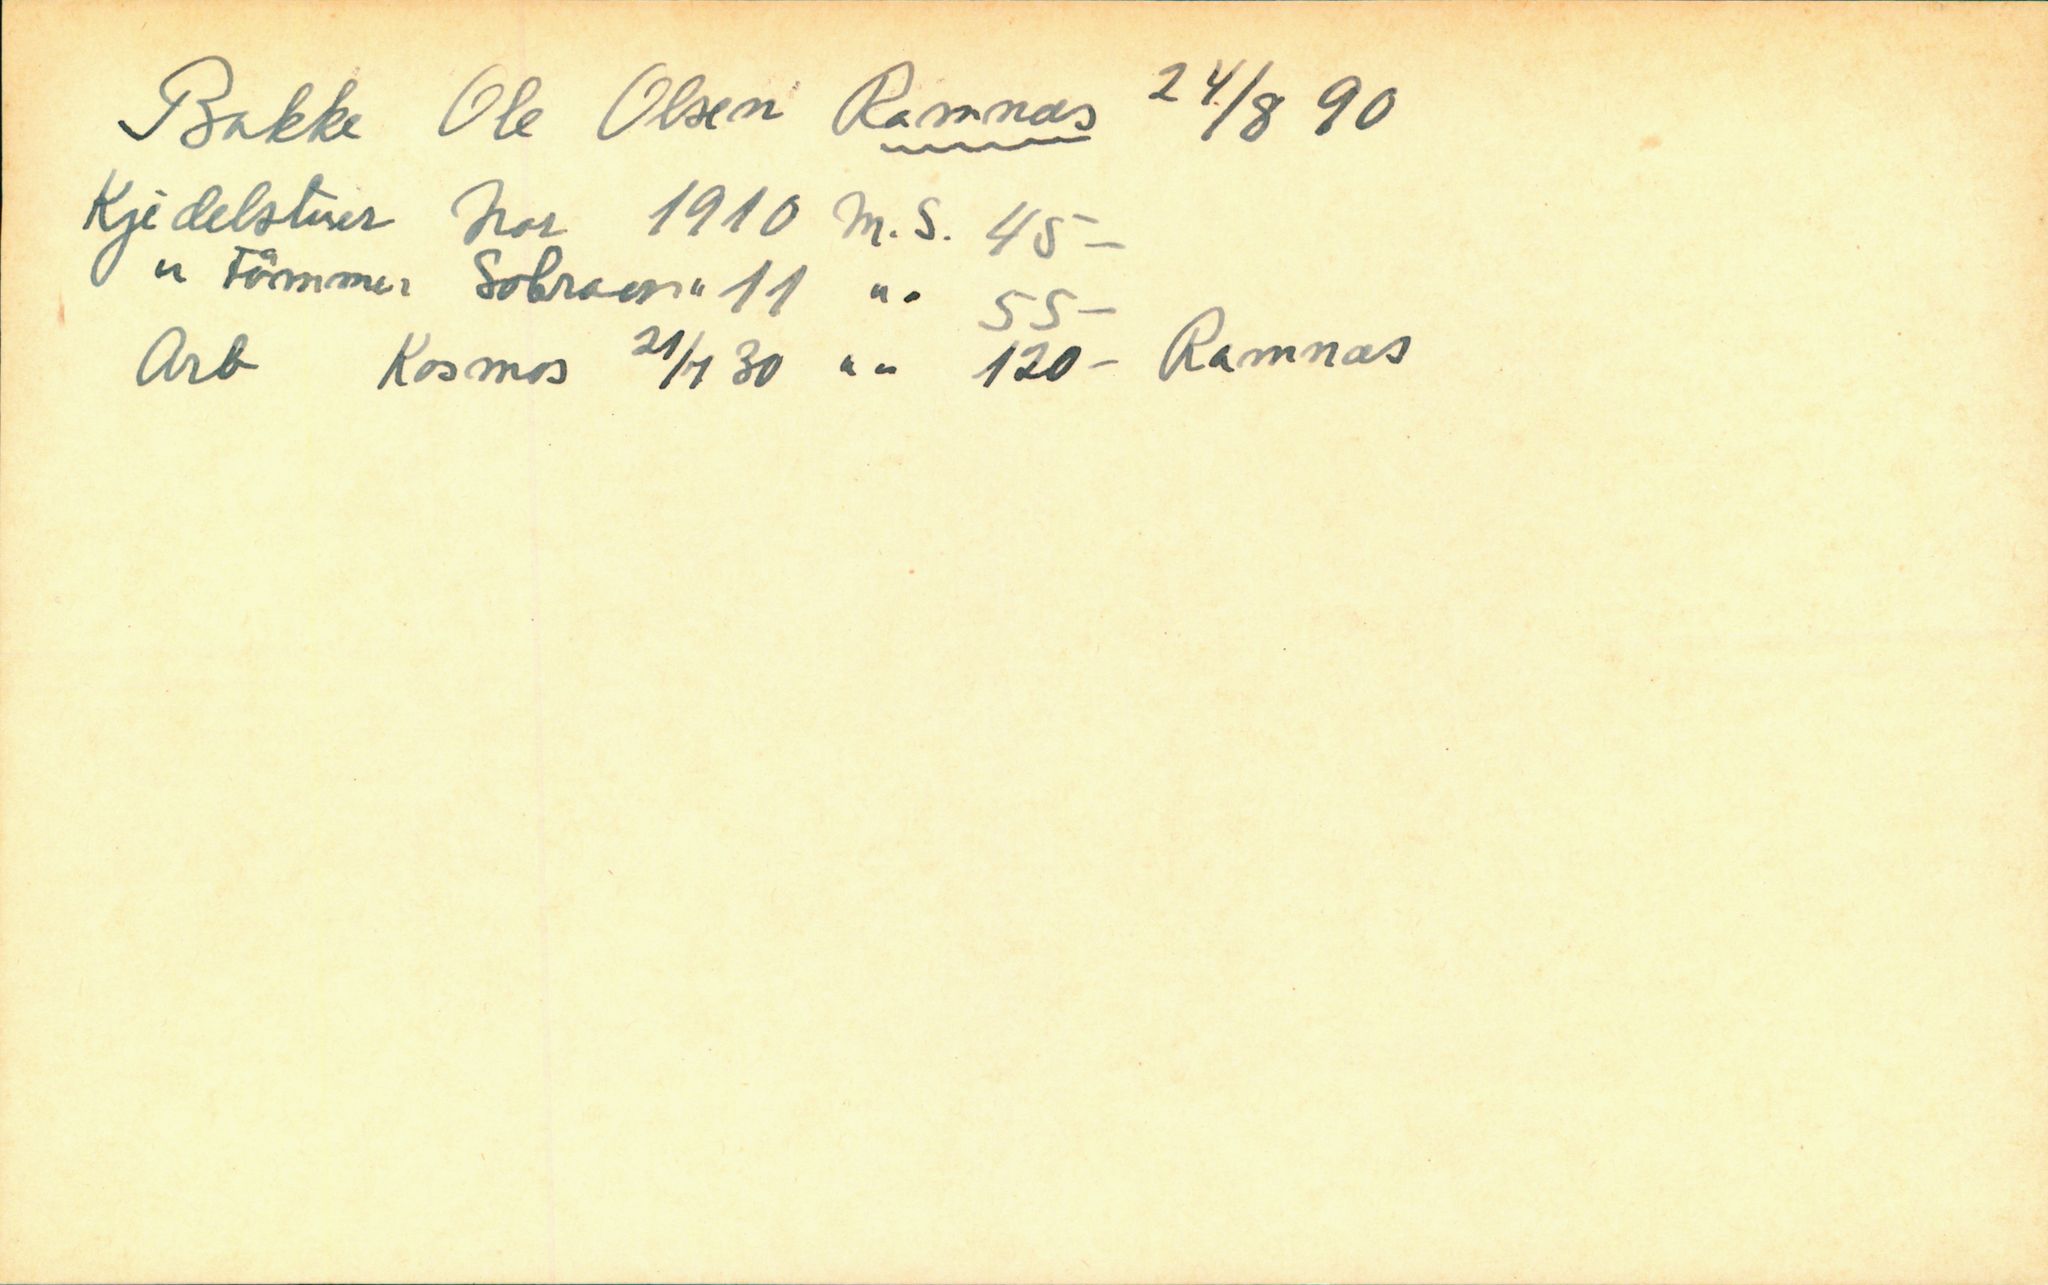 Bakke Ole Olsen Ramnæs 24/8 90
Kjedelstuer Nor 1910 M.S. 45-
" Tömmer " 11 " " 55-
Arb Kosmos 21/7 30 " " 120- Ramnæs